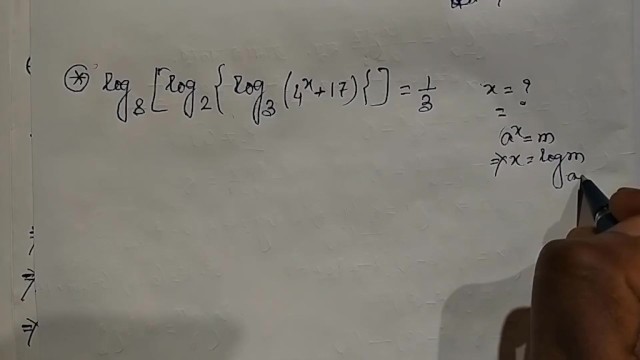 ⊛ log₈[log₂{log₃(4ˣ+17)}] = 1/3
x = ?
= ?
aˣ = m
⇒ x = log m
a
⇒
⇒
⇒